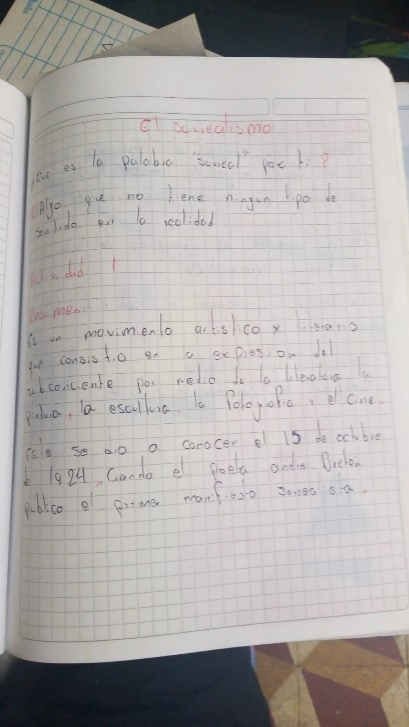 El surrealismo
¿Que es la palabra "surreal" para ti?
Algo que no tiene ningun tipo de
sentido en la realidad
Actividad 1
Resumen
Es un movimiento artistico y literario
que consistio en la expresion del
subconciente por medio de la literatura la
pintura, la escultura la fotografia y el cine.
Este se dio a conocer el 15 de octubre
1924, Cando el poeta andre Breton
publico el primer manifiesto surrealista.